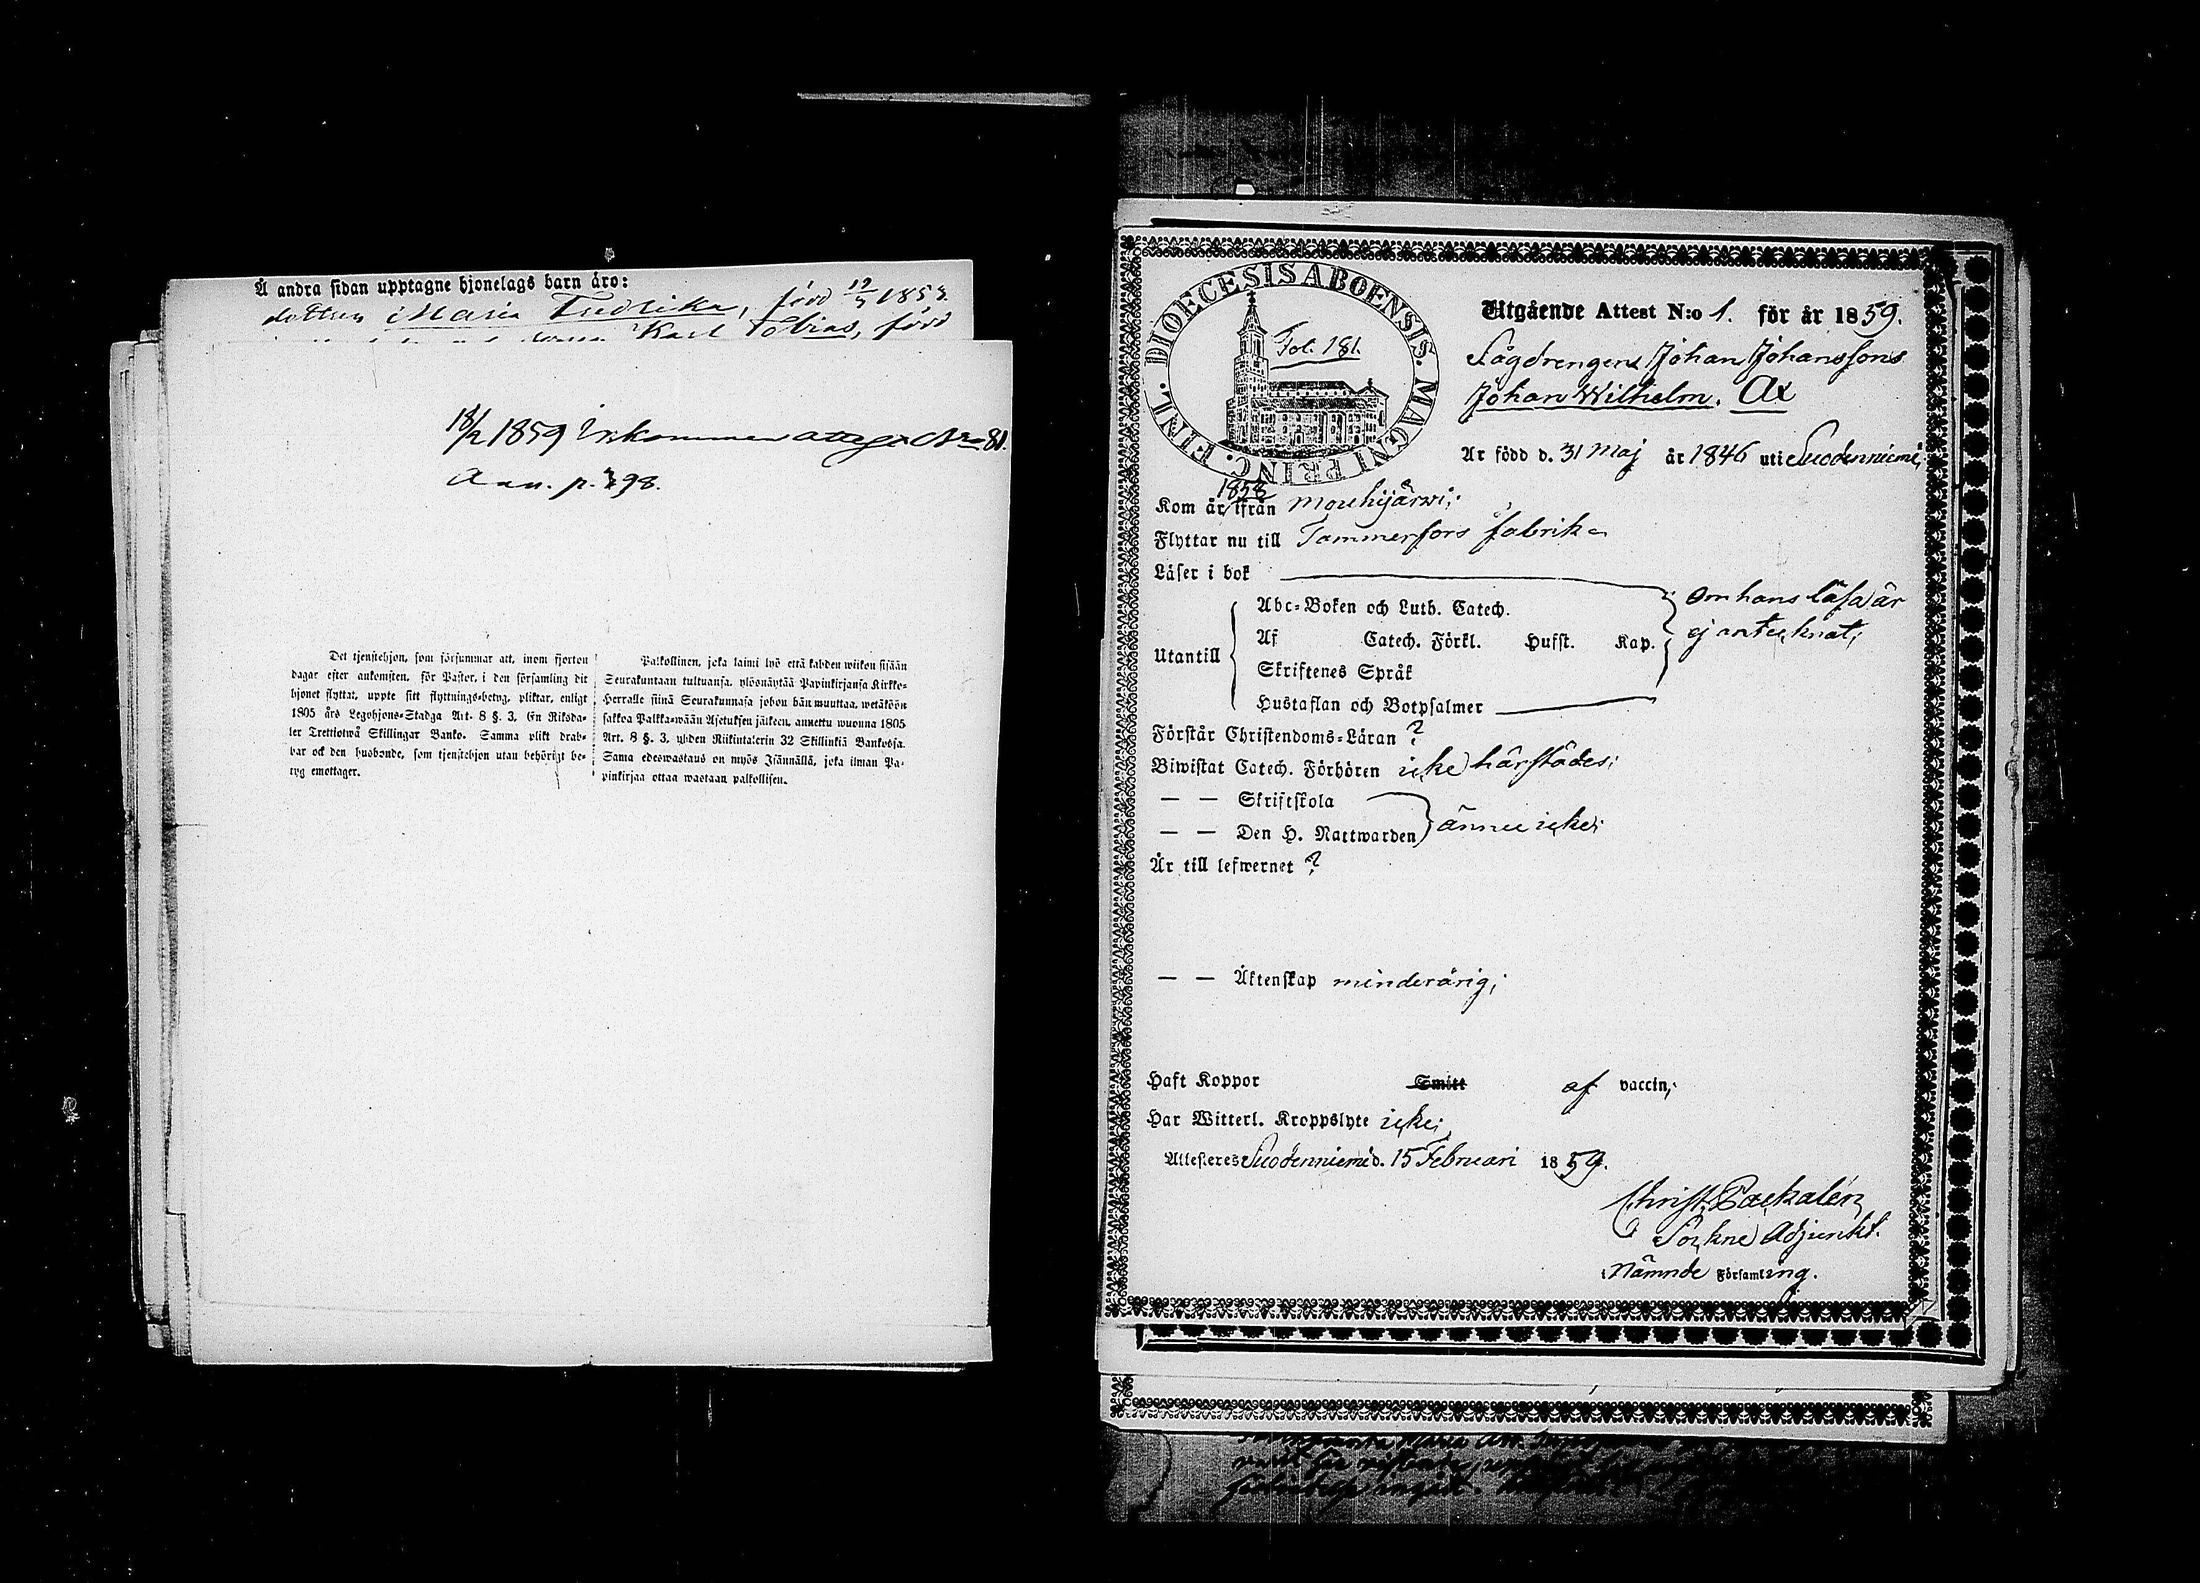 Å andra sidan upptagne hjonelags barn äro:
dottren Maria Fredrika, född 12/3 1853.
Karl Tobias, född
18/2 1859 Inkommen attest No 81.
Ann. p. 398.
Det tjenstehjon, som försummar att, inom fjorton
dagar efter ankomsten, för Pastor, i den församling dit
hjonet flyttat, uppte sitt flyttnings-betyg, pliktar, enligt
1805 års Legohjons-Stadga Art. 8 §. 3, En Riksda-
ler Trettiotwå Skillingar Banko. Samma plikt drab-
bar ock den husbonde, som tjenstehjon utan behörigt be-
tyg emottager.
Palkollinen, joka laimi lyö että kahden wiikon sisään
Seurakuntaan tultuansa, ylösnäytää Papinkirjansa Kirkko-
Herralle siinä Seurakunnasa johon hän muuttaa, wetäköön
sakkoa Palkka-wään Asetuksen jälkeen, annettu wuonna 1805
Art. 8 §. 3, yhden Riikintalerin 32 Skillinkiä Bankossa.
Sama edeswastaus on myös Isännällä, joka ilman Pa-
pinkirjaa ottaa wastaan palkollisen.
DIOECESIS ABOENSIS. MAGNI PRINC. FINL.
Fol. 181.
Utgående Attest N:o 1. för år 1859.
Sågdrengens Johan Johanssons
Johan Wilhelm. Ax
Är född d. 31 Maj år 1846 uti Suodenniemi;
Kom år 1858 ifrån Mouhijärwi;
Flyttar nu till Tammerfors fabrik
Läser i bok
Utantill
Abc-Boken och Luth. Catech.
Af Catech. Förkl. Hufst. Kap.
Skriftenes Språk
Hustaflan och Botpsalmer
om hans läsa är
ej antecknat;
Förstår Christendoms-Läran ?
Biwistat Catech. Förhören icke härstädes;
— — Skriftskola
— — Den H. Nattwarden
ännu icke;
Är till lefwernet ?
— — Äktenskap minderårig;
Haft Koppor Smitt af vaccin;
Har Witterl. Kroppslyte icke;
Attesteres Suodenniemi d. 15 Februari 1859.
Christ. Packalén
Sockne Adjunkt.
Nämnde Församling.